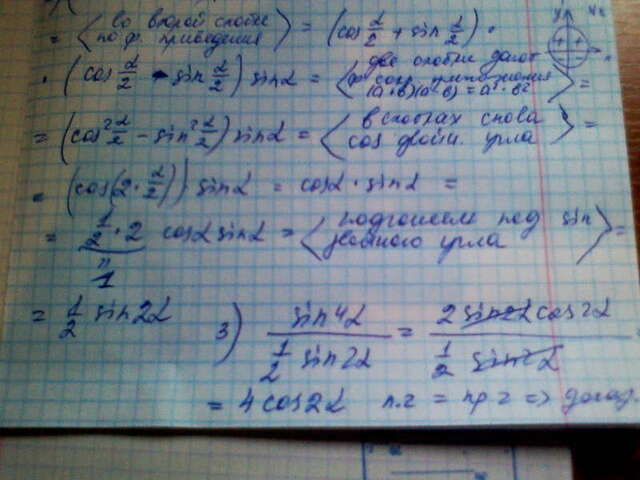 = ⟨ во второй скобке по ф. приведения ⟩ = (cos α/2 + sin α/2) ·
· (cos α/2 - sin α/2) sin α = ⟨ две скобки дают сокр. (a+b)(a-b) = a² - b² ⟩ =
= (cos² α/2 - sin² α/2) sin α = ⟨ в скобках снова cos двойн. угла ⟩ =
= (cos(2 · α/2)) · sin α = cos α · sin α =
= 1/2 · 2 cos α sin α = ⟨ под sin угла ⟩ =
1
= 1/2 sin 2α 3) sin 4α / (1/2 sin 2α) = 2 sin 2α cos 2α / (1/2 sin 2α)
= 4 cos 2α л.ч = пр.ч => доказ.